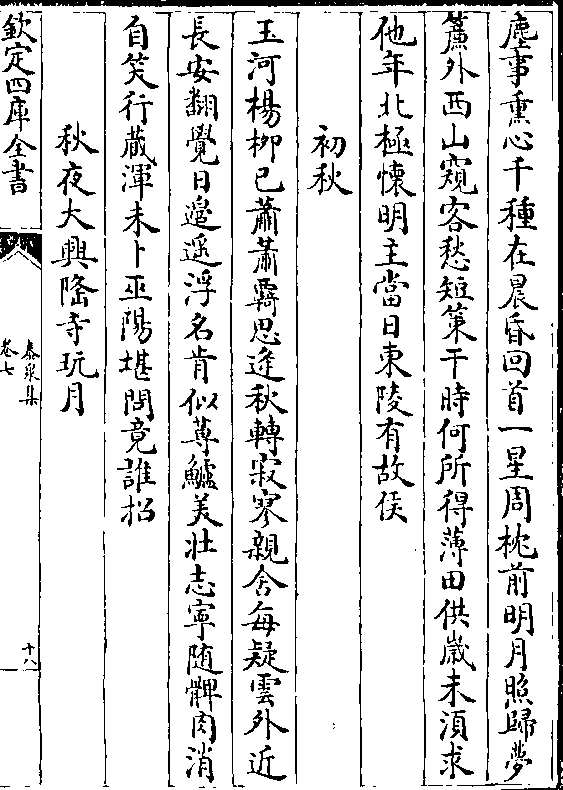 塵事熏心千種在晨昏回首一星周枕前明月照歸夢
簾外西山窺客愁短策干時何所得薄田供歲未須求
他年北極懷明主當日東陵有故侯
初秋
玉河楊栁已蕭蕭覊思逢秋轉寂寥親舍每疑雲外近
長安翻覺日邉遥浮名肯似蓴鱸美壯志寧隨髀肉消
自笑行藏渾未卜巫陽堪問竟誰招
秋夜大興隆寺玩月
欽定四庫全書
泰泉集
卷七
十八